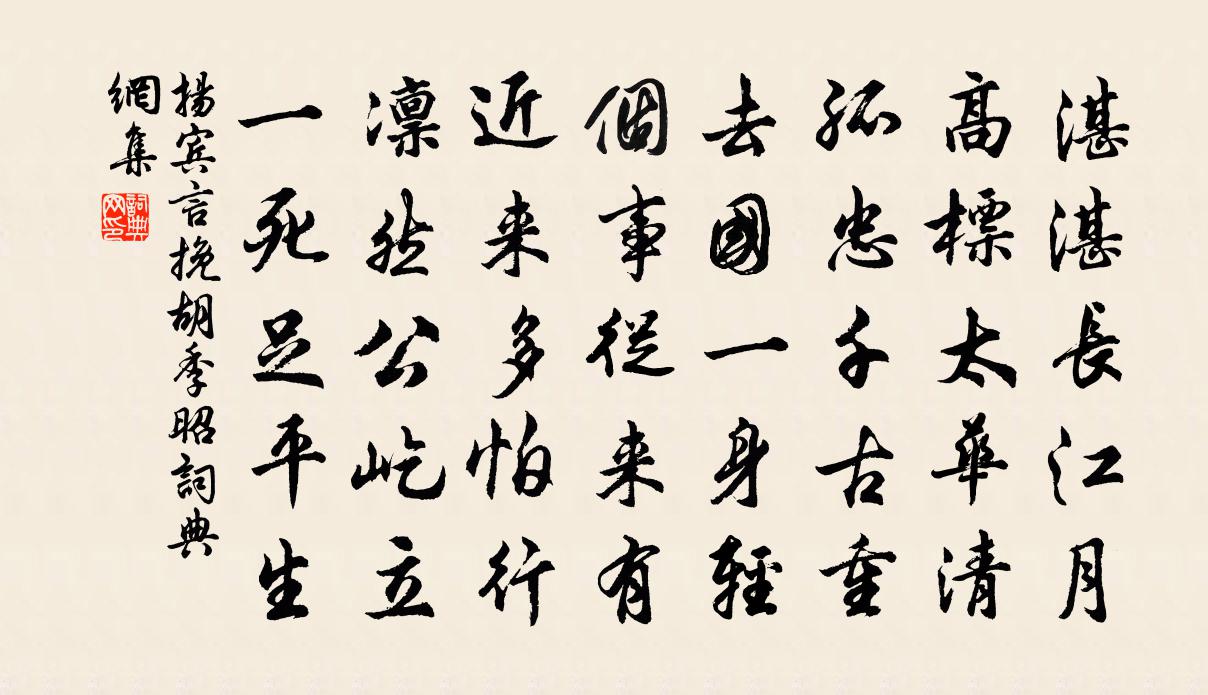 湛湛長江月
高標太華清
孤忠千古重
去國一身輕
個事從来有
近来多怕行
凛然公屹立
一死足平生
揚宾言挽胡季昭詞典
網集
詞典
网印